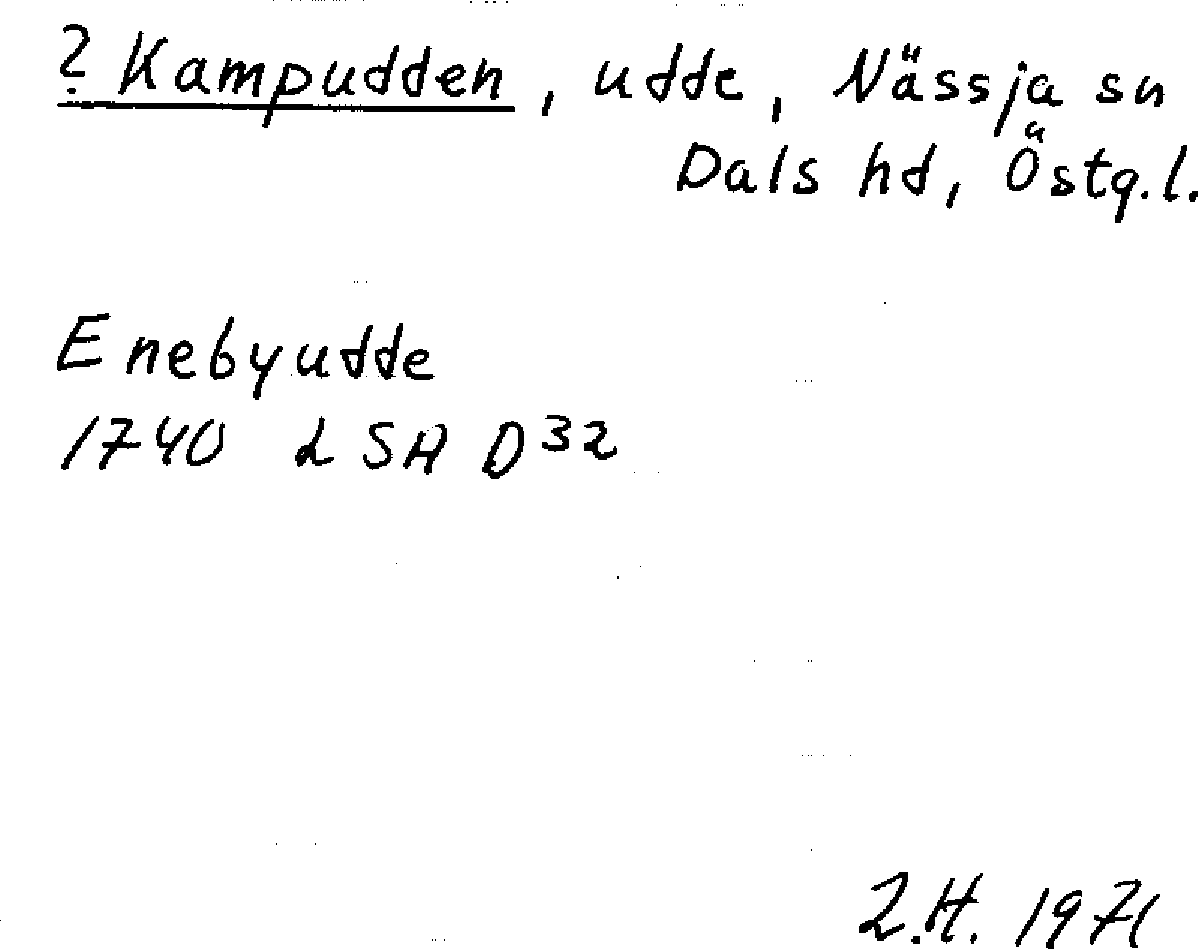 ? Kampudden, udde, Nässja sn
Dals hd, Östg.l.
Enebyudde
1740 LSA D 32
L.H. 1971